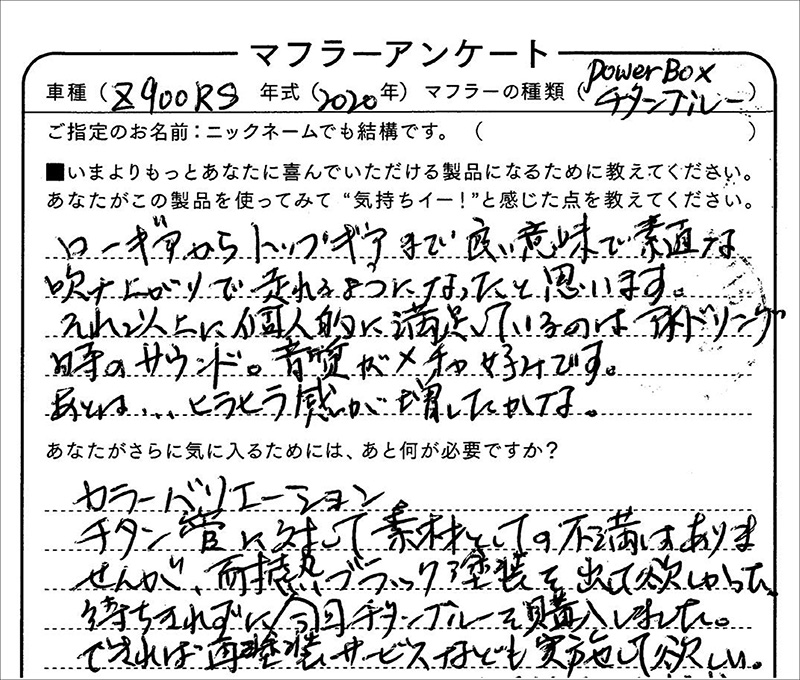 マフラーアンケート
車種（Z900RS 年式（2020年）マフラーの種類（PowerBox チタンブルー）
ご指定のお名前：ニックネームでも結構です。（ ）
■いまよりもっとあなたに喜んでいただける製品になるために教えてください。
あなたがこの製品を使ってみて“気持ちイー！”と感じた点を教えてください。
ローギアからトップギアまで良い意味で素直な
吹け上がりで走れるようになったと思います。
それ以上に個人的に満足しているのはアイドリング
時のサウンド。音質がメチャ好みです。
あとは...ヒラヒラ感が増したかな。
あなたがさらに気に入るためには、あと何が必要ですか？
カラーバリエーション
チタン管に対して素材としての不満はありま
せんが、耐熱ブラック塗装を出して欲しかった
待ちきれずに今回チタンブルーを購入しました。
できれば再塗装サービスなども実施して欲しい。